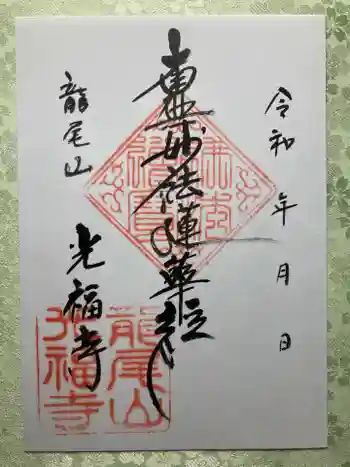 令和 年 月 日
南無妙法蓮華経
龍尾山
光福寺
龍尾山
福寺